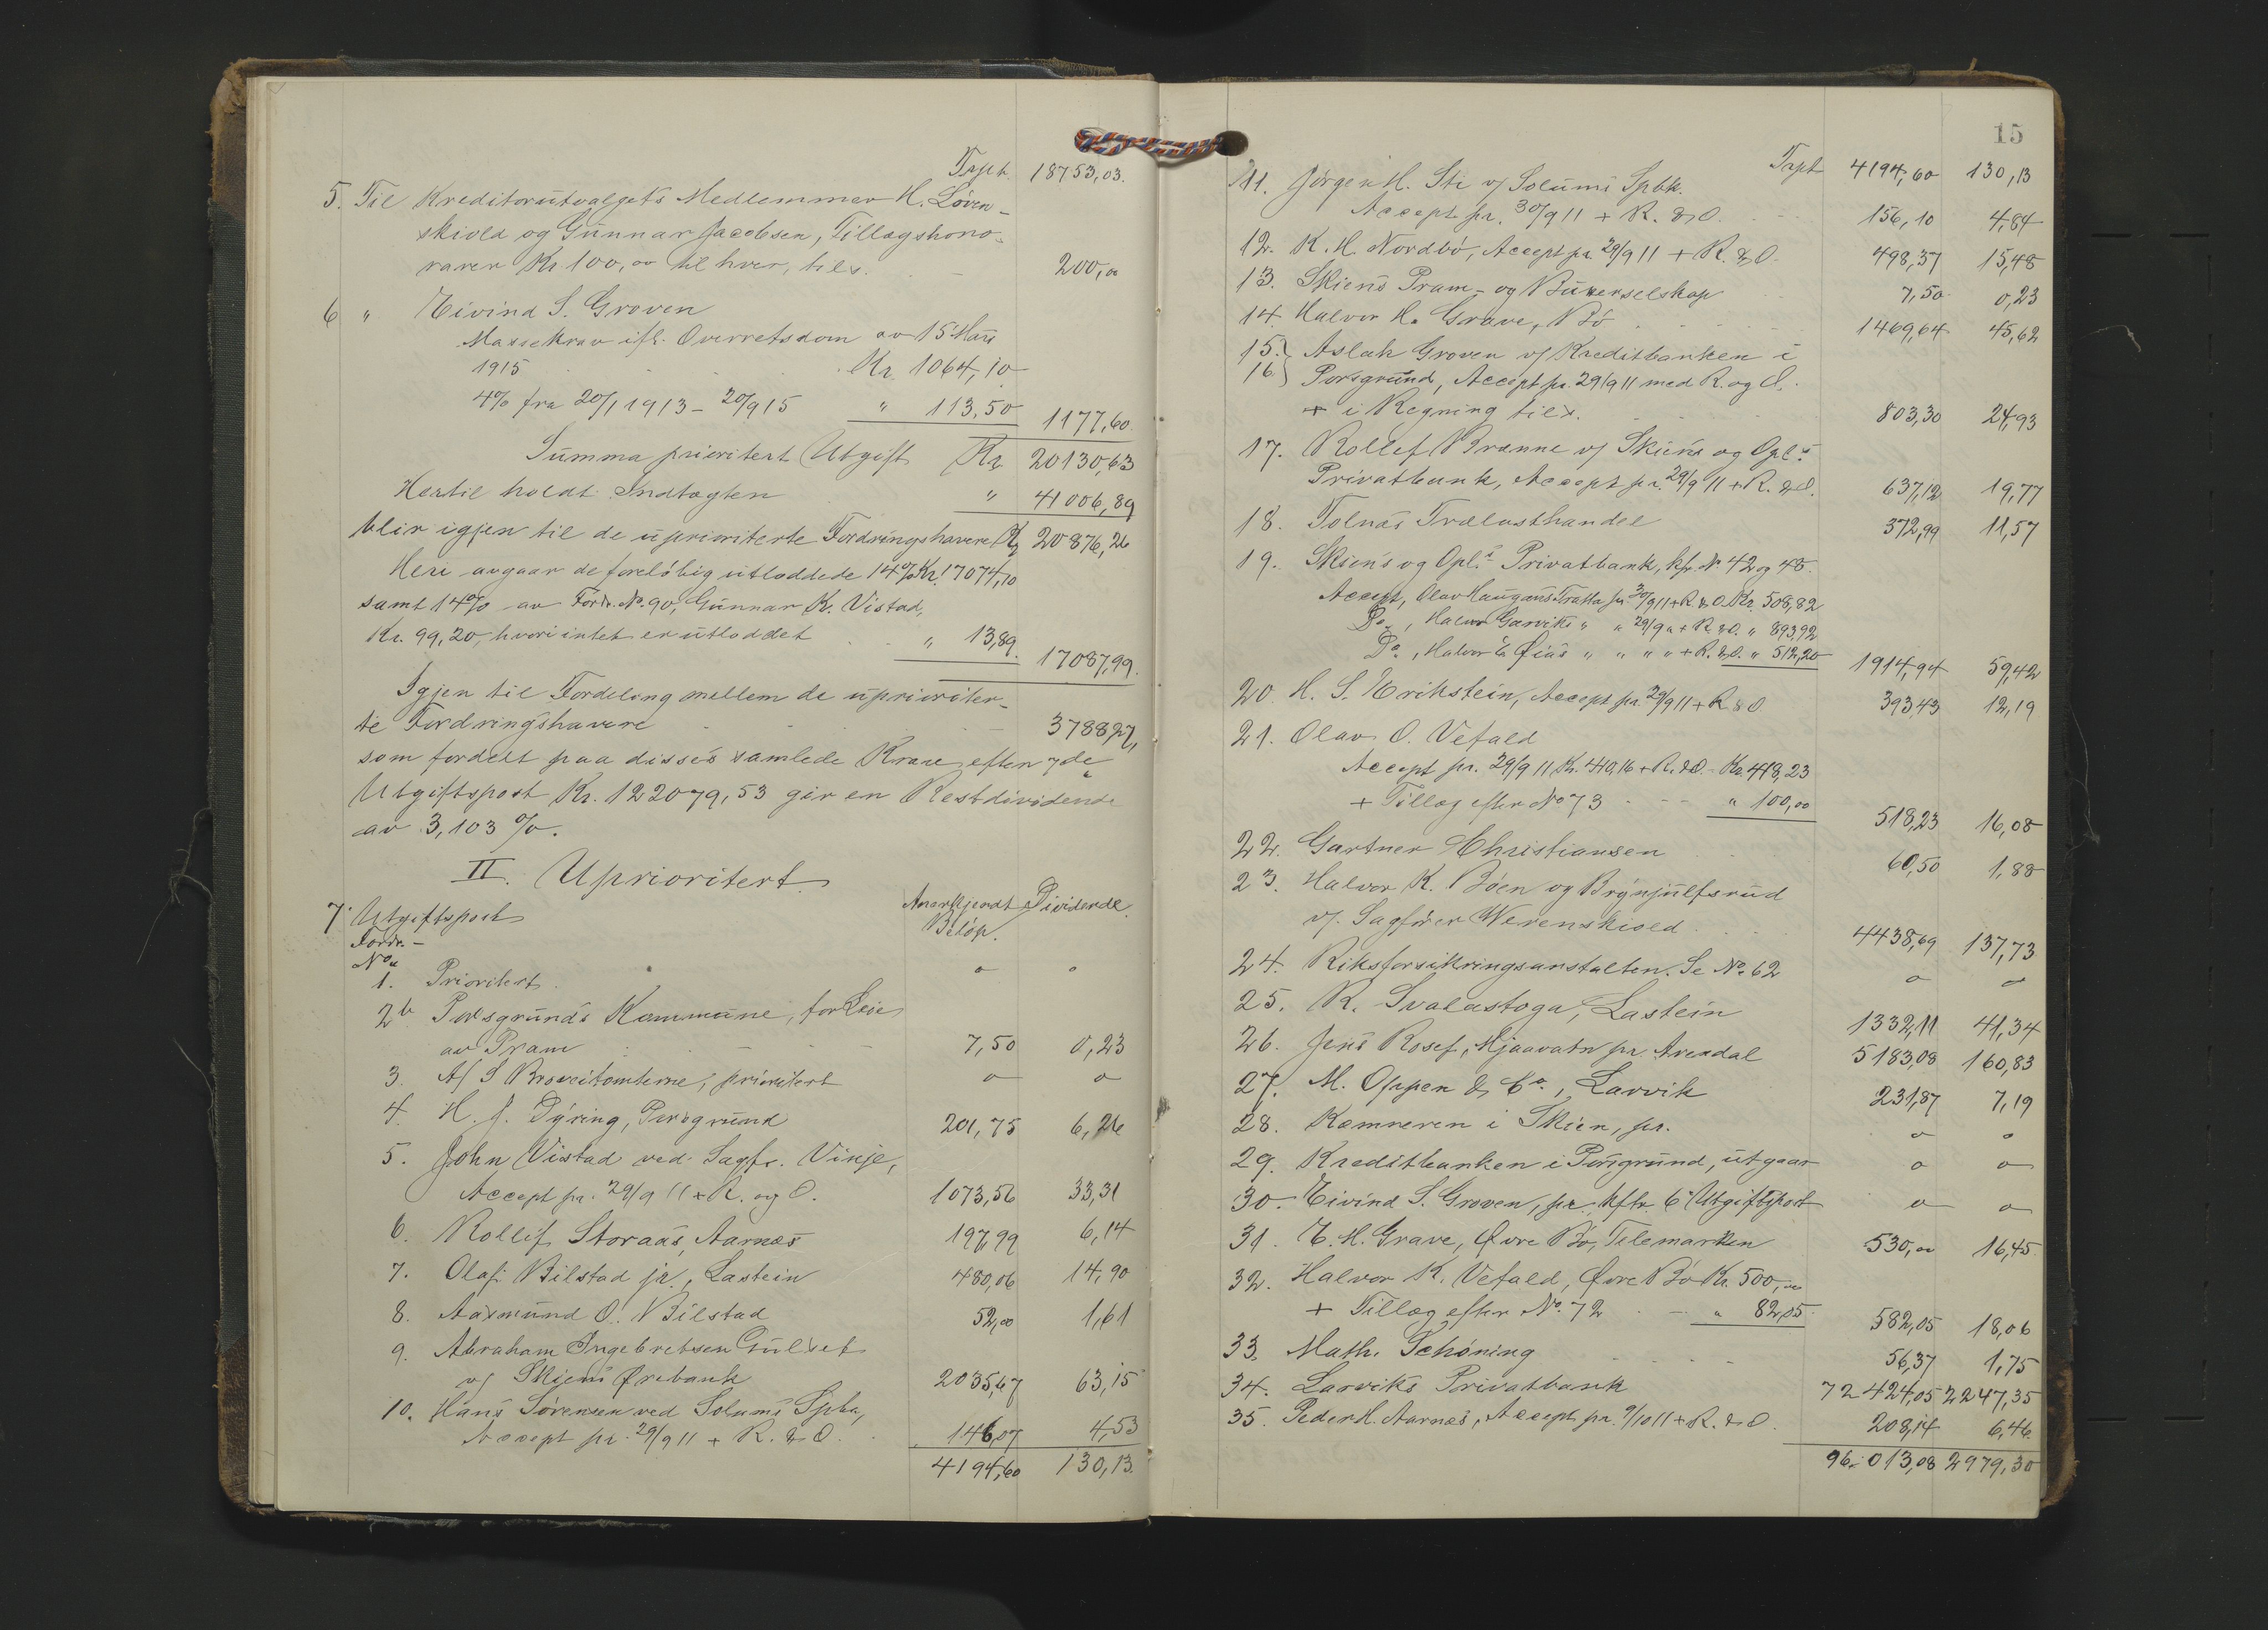 Trpt. 18753,03.
5. Til Kreditorutvalgets Medlemmer H. Løven-
skiold og Gunnar Jacobsen, Tillægshono-
rarer Kr 100,00 til hver, tils. 200,00
6 " Eivind S. Groven
Massekrav ifl. Overretsdom av 15 Mars
1915 Kr. 1064,10
4% fra 20/1 1913 - 20/9 15 " 113,50 1177,60.
Summa prioritert Utgift Kr. 20130,63
Hertil holdt Indtægten " 41006,89
blir igjen til de uprioriterte Fordringshavere Kr 20876,26
Heri avgaar de foreløbig utloddede 14% Kr. 17074,10
samt 14% av Fordr. No. 90, Gunnar K. Vistad,
Kr. 99,20, hvori intet er utloddet " 13,89. 17087,99.
Igjen til Fordeling mellem de uprioriter-
te Fordringshavere 3788,27,
som fordelt paa disses samlede Krav efter 7de
Utgiftspost Kr. 122079,53 gir en Restdividende
av 3,103 %.
II. Uprioritert.
7. Utgiftspost Anerkjendt Dividende.
Fordr. - Beløp.
No.
1. Prioritert. o o
2b Porsgrunds Kommune, for Leie
av Pram 7,50 0,23
3. A/S Broreitomterne, prioritert o o
4. H. J. Dyring, Porsgrund 201,75 6,26
5. John Vistad ved Sagfr. Vinje,
Accept pr. 29/9 11 + R. og O. 1073,56 33,31
6. Rollef Storaas, Aarnes 197,99 6,14
7. Olaf Bilstad jr., Lastein 480,06 14,90
8. Aasmund O. Bilstad 52,00 1,61
9. Abraham Ingebretsen Gulset
v/ Skiens Ørebank 2035,67 63,15
10. Hans Sørensen ved Solums Spbk,
Accept pr. 29/9 11 + R. & O. 146,07 4,53
4194,60 130,13.
15
Trpt 4194,60 130,13
11. Jørgen H. Sti v/ Solums Spbk.
Accept pr. 30/9 11 + R. & O. 156,10 4,84
12. K. H. Nordbø, Accept pr 29/9 11 + R. & O. 498,37 15,48
13. Skiens Pram- og Buxerselskap 7,50 0,23
14. Halvor H. Grave, Bø 1469,64 45,62
15. } Aslak Groven v/ Kreditbanken i
16. } Porsgrund, Accept pr. 29/9 11 med R. og O.
+ i Regning tils. 803,30 24,93
17. Rollef Brenne v/ Skiens og Opls
Privatbank, Accept pr. 29/9 11 + R. & O. 637,12 19,77
18. Tolnæs Trælasthandel 372,99 11,57
19. Skiens og Opls Privatbank, kfr. No 42 og 48.
Accept, Olav Haugans Tratta pr. 30/9 11 + R. & O. Kr. 508,82
Do., Halvor Garviks " " 29/9 " + R. & O. " 893,92
Do., Halvor E. Øiás " " " " + R. & O. " 512,20 1914,94 59,42
20. H. S. Erikstein, Accept pr. 29/9 11 + R & O 393,43 12,19
21. Olav O. Vefald
Accept pr. 29/9 11, Kr. 410,16 + R. & O. - Kr. 418,23
+ Tillæg efter No 73 - " 100,00 518,23 16,08
22. Gartner Christiansen 60,50 1,88
23. Halvor K. Bøen og Brynjulfsrud
v/ Sagfører Werenskiold 4438,69 137,73
24. Riksforsikringsanstalten. Se No. 62 o o
25. R. Svalastoga, Lastein 1332,11 41,34
26. Jens Rosef, Mjaavatn pr. Arendal 5183,08 160,83
27. M. Oppen & Co., Larvik 231,87 7,19
28. Kæmneren i Skien, pr. o o
29. Kreditbanken i Porsgrund, utgaar o o
30. Eivind S. Groven, pr. kftr 6 Utgiftspost o o
31. E. H. Grave, Øvre Bø, Telemarken 530,00 16,45
32. Halvor K. Vefald, Øvre Bø Kr. 500,00
+ Tillæg efter No. 72 - " 82,05 582,05 18,06
33. Math. Schøning 56,37 1,75
34. Larviks Privatbank 72424,05 2247,35
35. Peder H. Aarnes, Accept pr. 9/10 11 + R. & O. 208,14 6,46.
96.013,08 2979,30